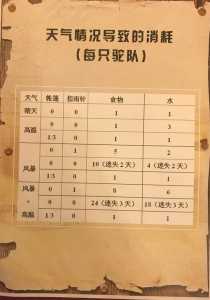 天气情况导致的消耗
(每只驼队)
天气 帐篷 指南针 食物 水
晴天 0 0 1 1
高温 0 0 1 3
1/3 0 1 1
0 1 5 2
风暴 0 0 10 (迷失2天) 4 (迷失2天)
1/3 0 1 1
风暴 0 1 8 6
+ 0 0 24 (迷失3天) 18 (迷失3天)
高温 1/3 0 1 1